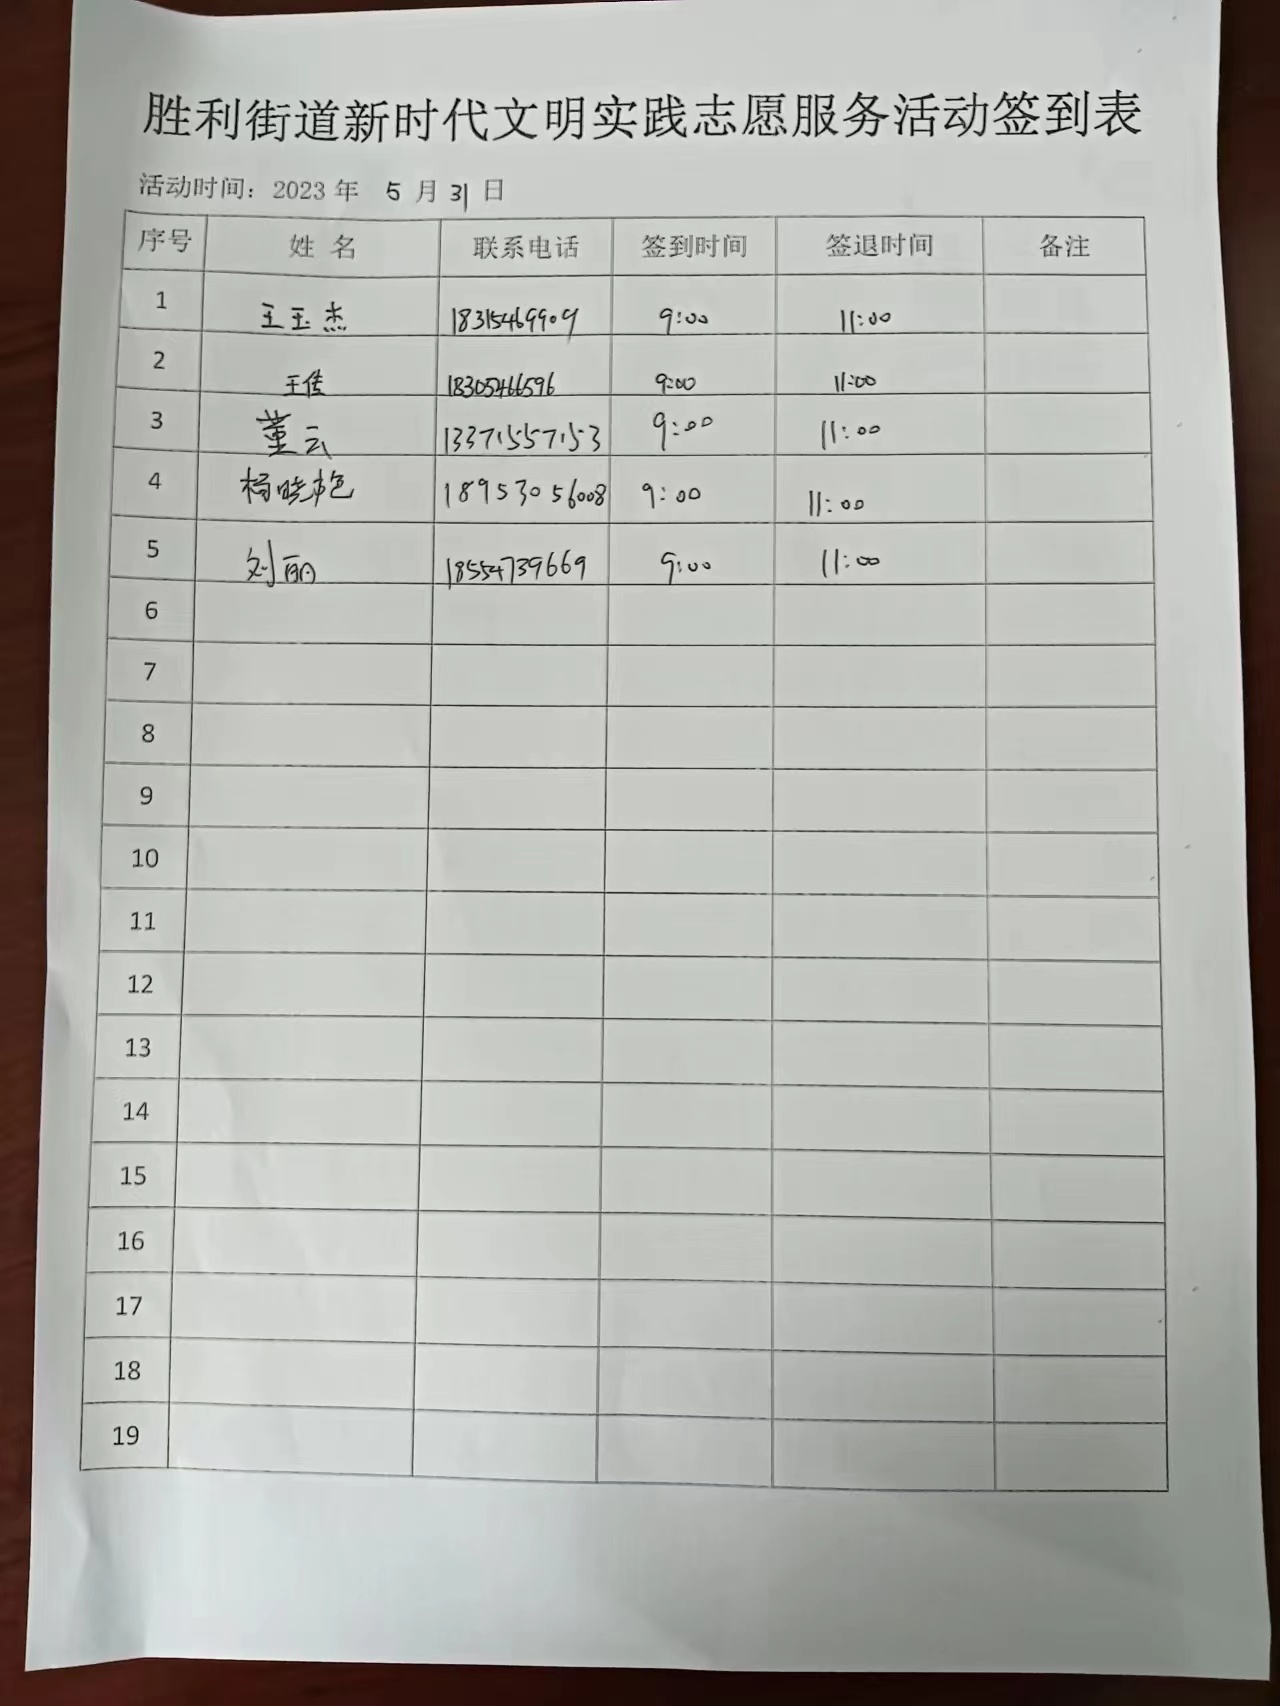 胜利街道新时代文明实践志愿服务活动签到表
活动时间：2023 年 5 月 31 日
序号 姓 名 联系电话 签到时间 签退时间 备注
1 王玉杰 18315469909 9:00 11:00
2 王佳 18305466596 9:00 11:00
3 董云 13371557153 9:00 11:00
4 杨晓艳 18953056008 9:00 11:00
5 刘丽 18554739669 9:00 11:00
6
7
8
9
10
11
12
13
14
15
16
17
18
19